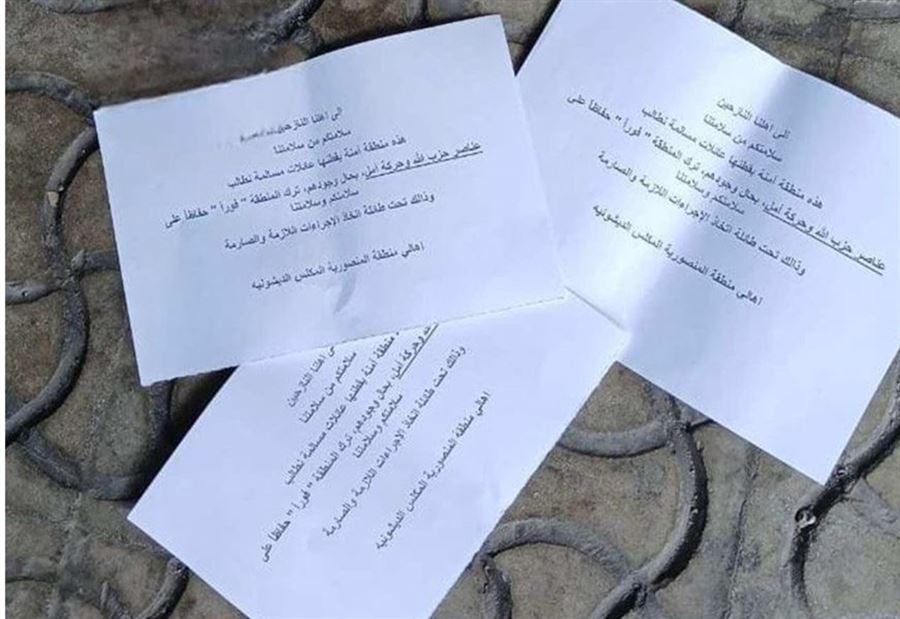 الى اهلنا النازحين
سلامتكم من سلامتنا
هذه منطقة آمنة يقطنها عائلات مسالمة نطالب
عناصر حزب الله وحركة أمل، بحال وجودهم، ترك المنطقة " فوراً " حفاظاً على
سلامتكم وسلامتنا
وذالك تحت طائلة اتخاذ الاجراءات اللازمة والصارمة
اهالي منطقة المنصورية المكلس الديشونيه
الى اهلنا النازحين
سلامتكم من سلامتنا
هذه منطقة آمنة يقطنها عائلات مسالمة نطالب
عناصر حزب الله وحركة أمل، بحال وجودهم، ترك المنطقة " فوراً " حفاظاً على
سلامتكم وسلامتنا
وذالك تحت طائلة اتخاذ الاجراءات اللازمة والصارمة
اهالي منطقة المنصورية المكلس الديشونيه
اهلنا النازحين
سلامتكم من سلامتنا
منطقة آمنة يقطنها عائلات مسالمة نطالب
وحركة أمل، بحال وجودهم، ترك المنطقة " فوراً " حفاظاً على
سلامتكم وسلامتنا
وذالك تحت طائلة اتخاذ الاجراءات اللازمة والصارمة
اهالي منطقة المنصورية المكلس الديشونيه